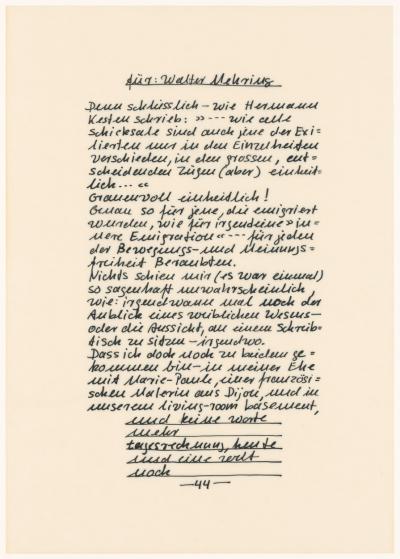 für: Walter Mehring
Denn schliesslich – wie Hermann
Kesten schrieb: »--- wie alle
Schicksale sind auch jene der Exi=
lierten nur in den Einzelheiten
verschieden, in den grossen, ent=
scheidenden Zügen (aber) einheit=
lich... «
Grauenvoll einheitlich!
Genau so für jene, die emigriert
wurden, wie für irgendeine »in=
nere Emigration« --- für jeden
der Bewegungs- und Meinungs=
freiheit Beraubten.
Nichts schien mir (es war einmal)
so sagenhaft unwahrscheinlich,
wie: irgendwann mal noch der
Anblick eines weiblichen Wesens –
oder die Aussicht, an einem Schreib=
tisch zu sitzen – irgendwo.
Dass ich doch noch zu beiden ge=
kommen bin – in meiner Ehe
mit Marie-Paule, einer französi=
schen Malerin aus Dijon, und in
unserem living-room basement,
und keine worte
mehr
tagesrechnung, heute
und eine welt
noch
—44—